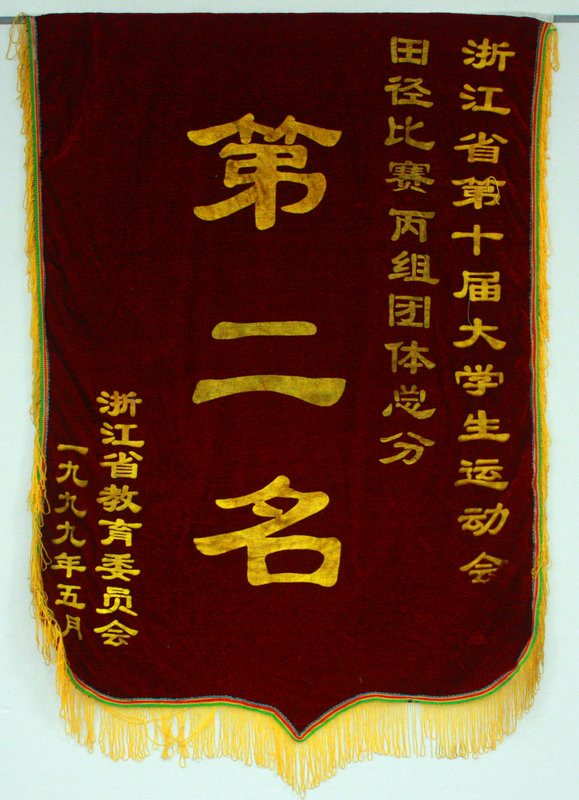 浙江省第十届大学生运动会
田径比赛丙组团体总分
第二名
浙江省教育委员会
一九九九年五月